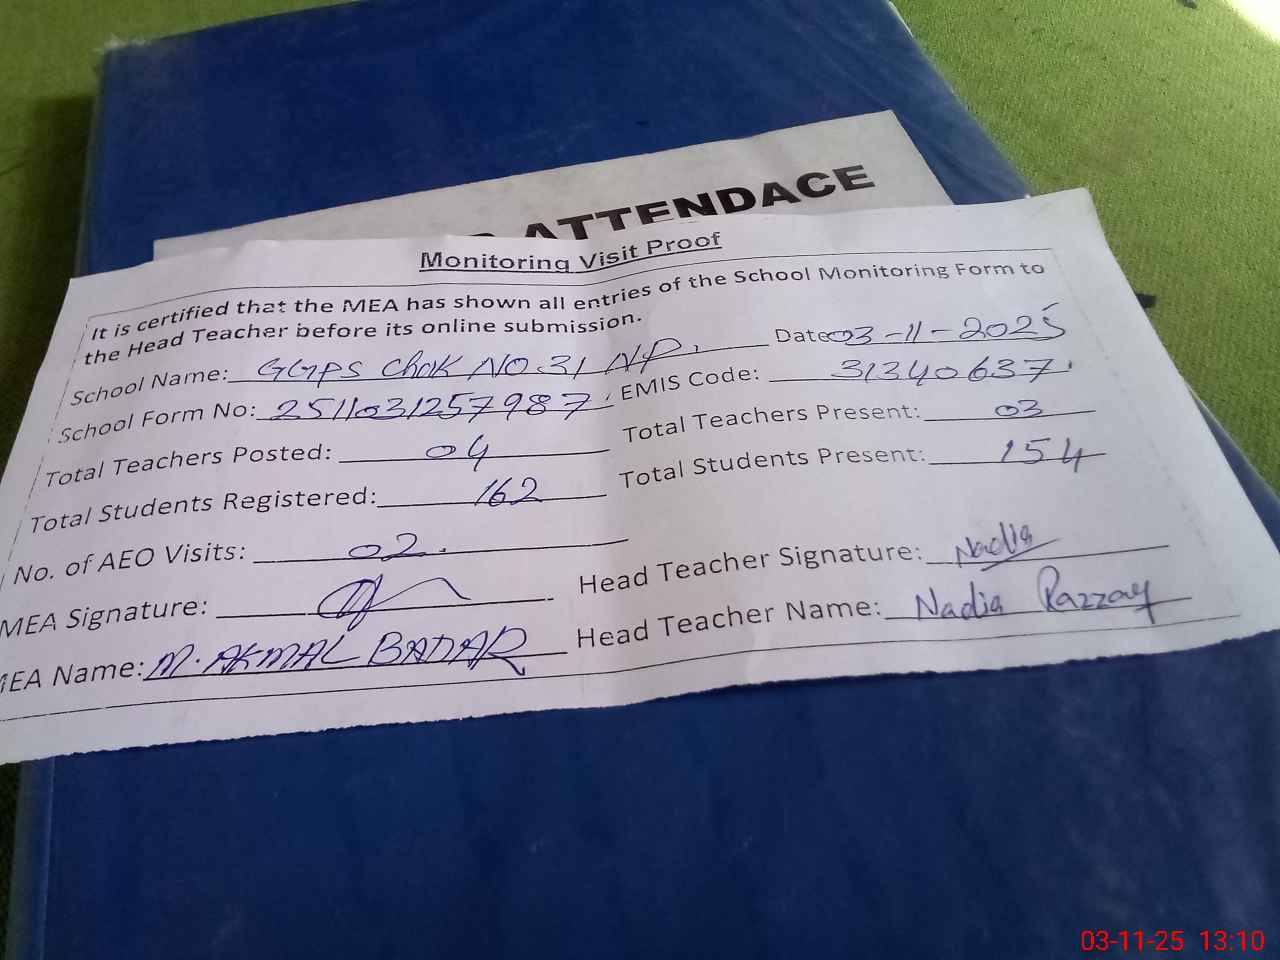 ATTENDACE
Monitoring Visit Proof
It is certified that the MEA has shown all entries of the School Monitoring Form to
the Head Teacher before its online submission.
School Name: GGPS Chak NO.31 NP. Date 03-11-2025
School Form No: 2511031257987 EMIS Code: 31340637
Total Teachers Posted: 04 Total Teachers Present: 03
Total Students Registered: 162 Total Students Present: 154
No. of AEO Visits: 02.
MEA Signature: Head Teacher Signature: Nadia
MEA Name: M. AKMAL BADAR Head Teacher Name: Nadia Razzaq
03-11-25 13:10